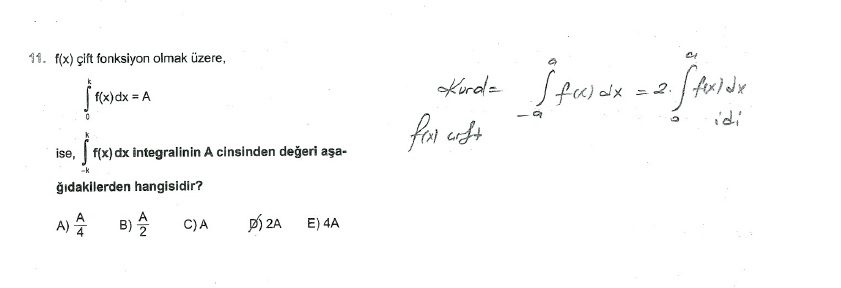 11. f(x) çift fonksiyon olmak üzere,
k
∫ f(x) dx = A
0
k
ise, ∫ f(x) dx integralinin A cinsinden değeri aşa-
-k
ğıdakilerden hangisidir?
A) A/4 B) A/2 C) A D) 2A E) 4A
Kural=
f(x) çift
a a
∫ f(x) dx = 2. ∫ f(x) dx
-a 0
idi